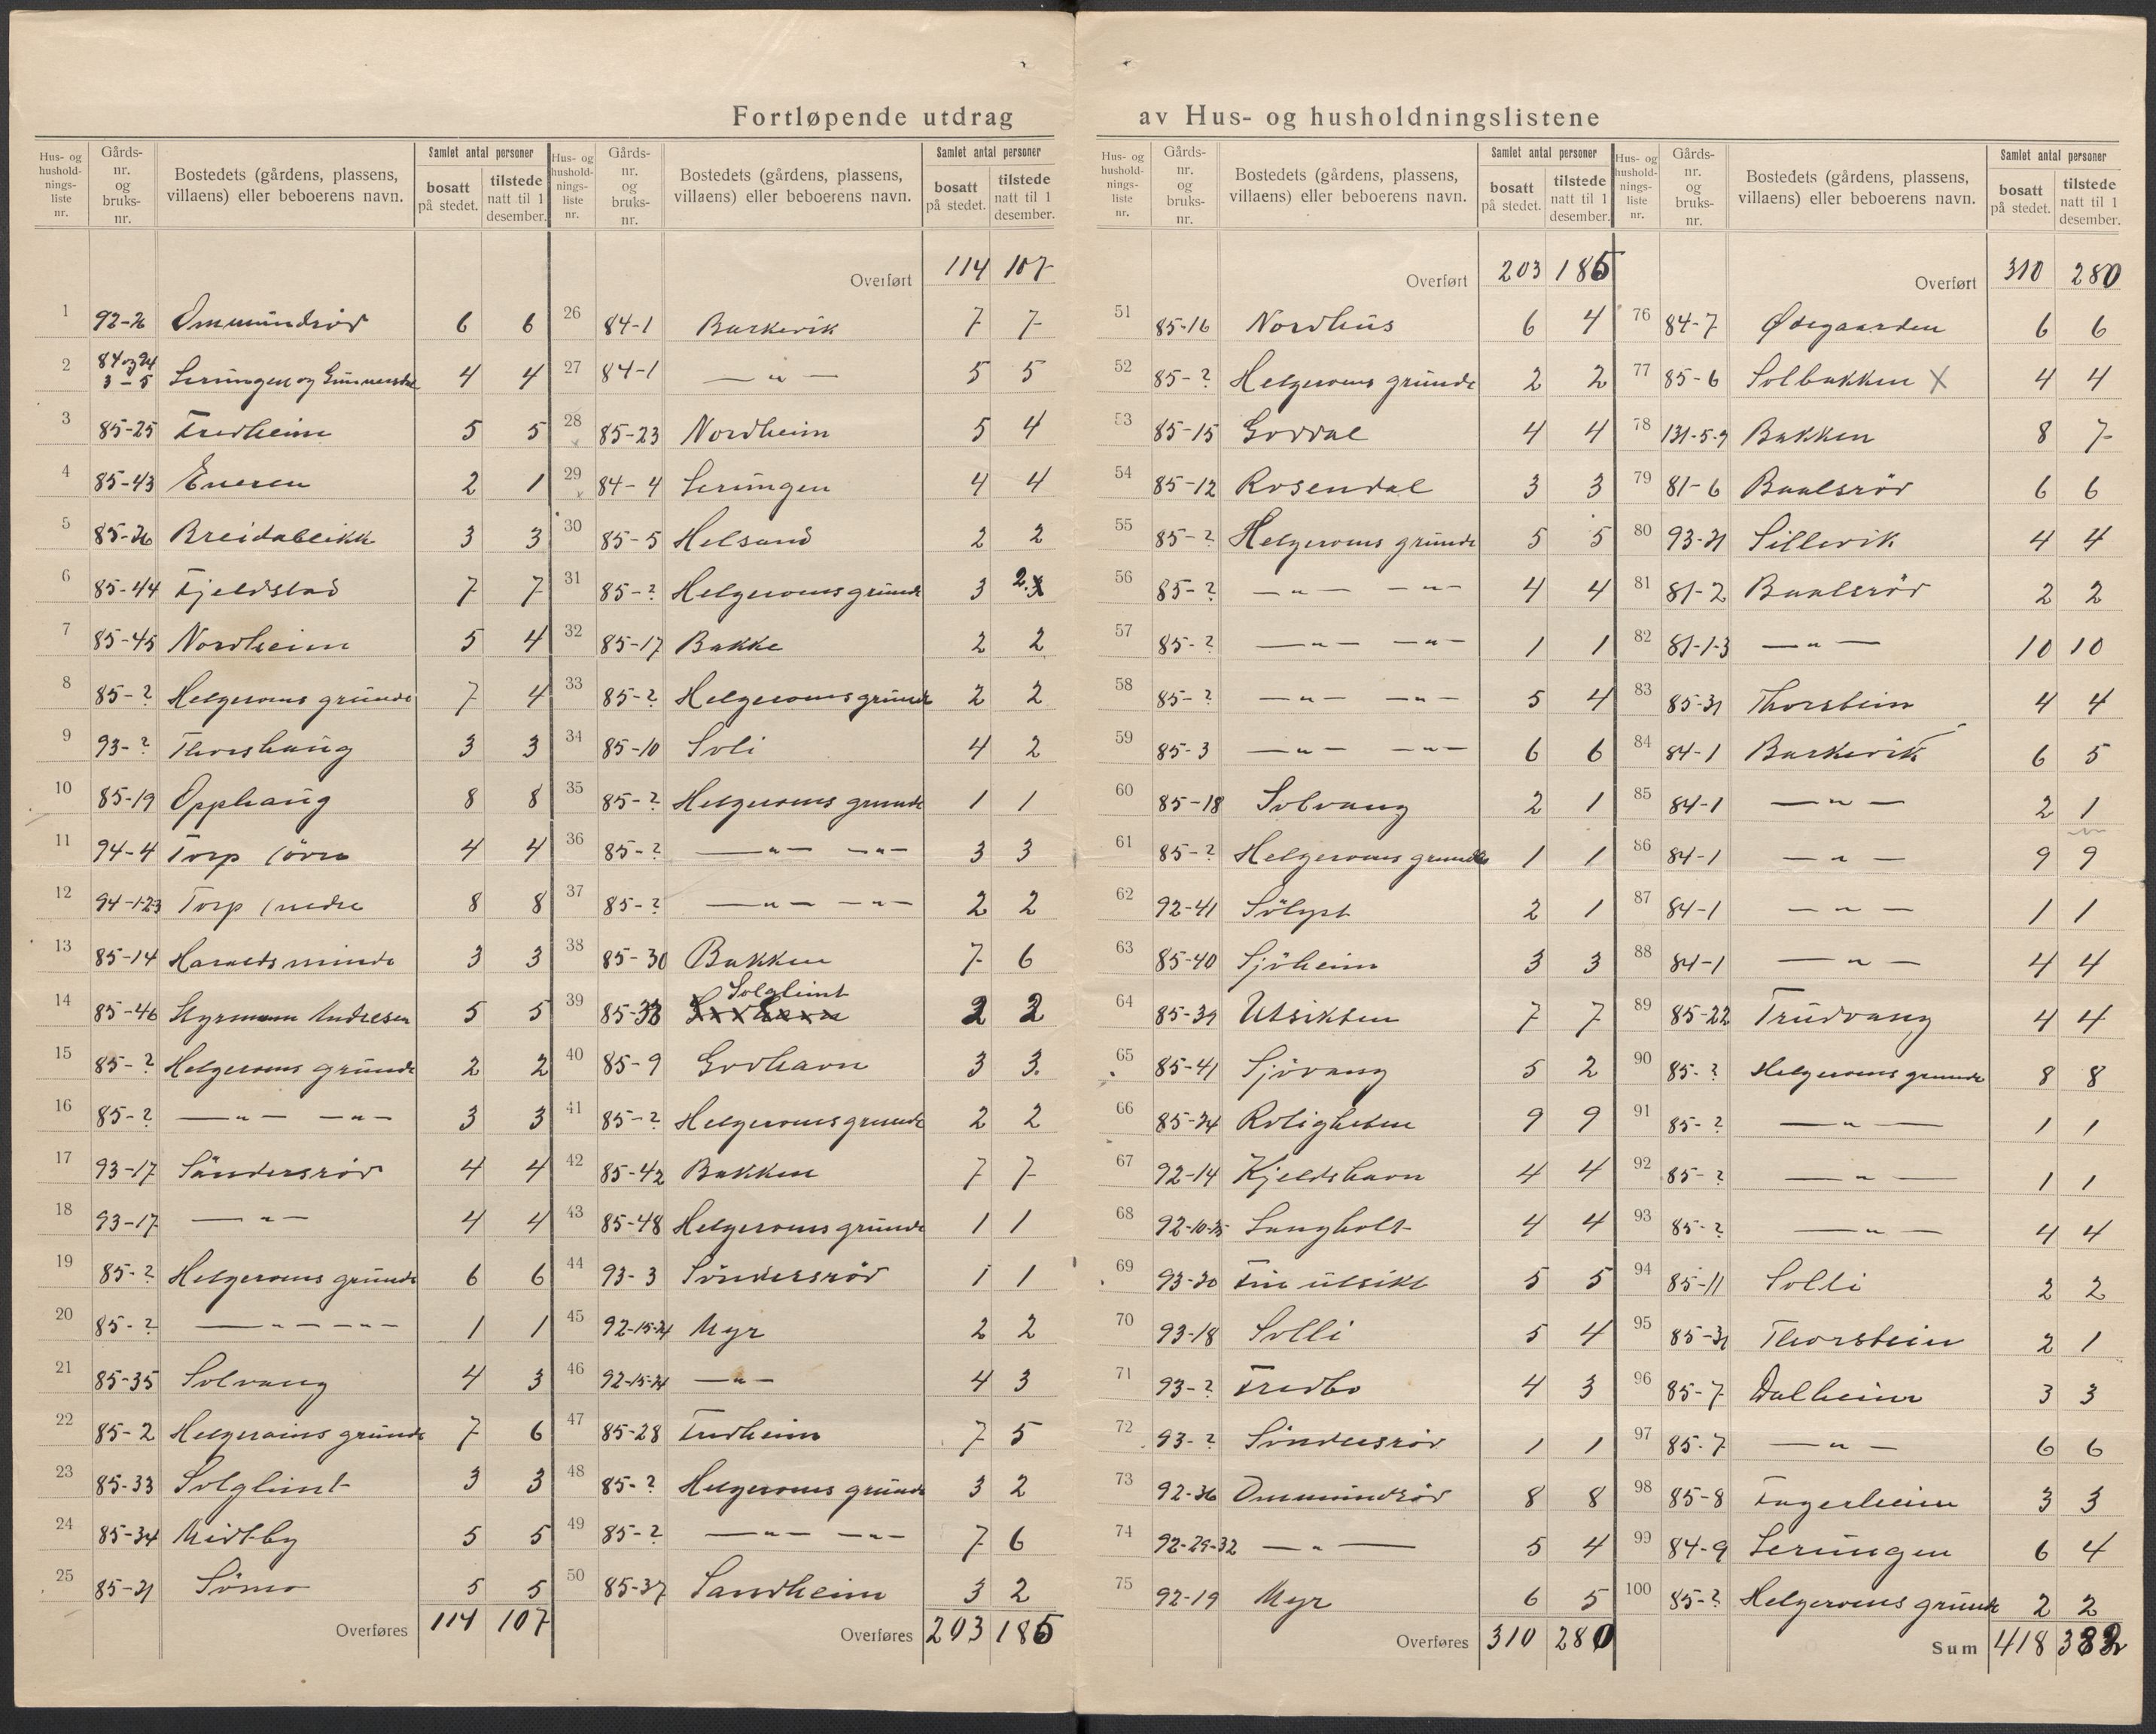 Fortløpende utdrag av Hus- og husholdningslistene
Hus- og husholdnings- liste nr. Gårds- nr. og bruks- nr. Bostedets (gårdens, plassens, villaens) eller beboerens navn. Samlet antal personer bosatt på stedet. tilstede natt til 1 desember.
1 92-26 Ommundrød 6 6
2 84 og 94 3-5 Lerungen og Gunnersbø 4 4
3 85-25 Fredheim 5 5
4 85-43 Eneren 2 1
5 85-26 Breidableikk 3 3
6 85-44 Fjeldstad 7 7
7 85-45 Nordheim 5 4
8 85-? Helgeroens grunde 7 4
9 93-? Thorshaug 3 3
10 85-19 Opphaug 8 8
11 94-4 Torp (övre 4 4
12 94-1-23 Torp (nedre 8 8
13 85-14 Haraldsminde 3 3
14 85-46 Styrmann Andresen 5 5
15 85-? Helgeroens grunde 2 2
16 85-? —"— —"— 3 3
17 93-17 Söndersröd 4 4
18 93-17 —"— 4 4
19 85-? Helgeroens grunde 6 6
20 85-? —"— —"— 1 1
21 85-35 Solvang 4 3
22 85-2 Helgeroens grunde 7 6
23 85-33 Solglimt 3 3
24 85-34 Midtby 5 5
25 85-21 Sömo 5 5
Overføres 114 107
Hus- og husholdnings- liste nr. Gårds- nr. og bruks- nr. Bostedets (gårdens, plassens, villaens) eller beboerens navn. Samlet antal personer bosatt på stedet. tilstede natt til 1 desember.
Overført 114 107
26 84-1 Barkevik 7 7
27 84-1 —"— 5 5
28 85-23 Nordheim 5 4
29 84-4 Lerungen 4 4
30 85-5 Helsand 2 2
31 85-? Helgeroens grunde 3 2
32 85-17 Bakke 2 2
33 85-? Helgeroens grunde 2 2
34 85-10 Soli 4 2
35 85-? Helgeroens grunde 1 1
36 85-? —"— —"— 3 3
37 85-? —"— —"— 2 2
38 85-30 Bakken 7 6
39 85-33 Solglimt 2 2
40 85-9 Godhavn 3 3.
41 85-? Helgeroens grunde 2 2
42 85-42 Bakken 7 7
43 85-48 Helgeroens grunde 1 1
44 93-3 Söndersröd 1 1
45 92-15-24 Myr 2 2
46 92-15-24 —"— 4 3
47 85-28 Fredheim 7 5
48 85-? Helgeroens grunde 3 2
49 85-? —"— —"— 7 6
50 85-37 Sandheim 3 2
Overføres 203 185
Hus- og husholdnings- liste nr. Gårds- nr. og bruks- nr. Bostedets (gårdens, plassens, villaens) eller beboerens navn. Samlet antal personer bosatt på stedet. tilstede natt til 1 desember.
Overført 203 185
51 85-16 Nordhus 6 4
52 85-? Helgeroens grunde 2 2
53 85-15 Goddal 4 4
54 85-12 Rosendal 3 3
55 85-? Helgeroens grunde 5 5
56 85-? —"— —"— 4 4
57 85-? —"— —"— 1 1
58 85-? —"— —"— 5 4
59 85-3 —"— —"— 6 6
60 85-18 Solvang 2 1
61 85-? Helgeroens grunde 1 1
62 92-41 Sölyst 2 1
63 85-40 Sjöheim 3 3
64 85-39 Utsikten 7 7
65 85-41 Sjövang 5 2
66 85-24 Roligheten 9 9
67 92-14 Kjeldshavn 4 4
68 92-10-25 Langholt 4 4
69 93-20 Fin utsikt 5 5
70 93-18 Solli 5 4
71 93-? Fredbo 4 3
72 93-? Söndersröd 1 1
73 92-36 Ommundröd 8 8
74 92-29-32 —"— 5 4
75 92-19 Myr 6 5
Overføres 310 280
Hus- og husholdnings- liste nr. Gårds- nr. og bruks- nr. Bostedets (gårdens, plassens, villaens) eller beboerens navn. Samlet antal personer bosatt på stedet. tilstede natt til 1 desember.
Overført 310 280
76 84-7 Ødegaarden 6 6
77 85-6 Solbakken X 4 4
78 131-5-9 Bakken 8 7
79 81-6 Baalsröd 6 6
80 93-21 Sillevik 4 4
81 81-2 Baalsröd 2 2
82 81-1-3 —"— 10 10
83 85-31 Thorstein 4 4
84 84-1 Barkevik 6 5
85 84-1 —"— 2 1
86 84-1 —"— 9 9
87 84-1 —"— 1 1
88 84-1 —"— 4 4
89 85-22 Trudvang 4 4
90 85-? Helgeroens grunde 8 8
91 85-? —"— 1 1
92 85-? —"— 1 1
93 85-? —"— 4 4
94 85-11 Solli 2 2
95 85-31 Thorstein 2 1
96 85-7 Dalheim 3 3
97 85-7 —"— 6 6
98 85-8 Fagerheim 3 3
99 84-9 Lerungen 6 4
100 85-? Helgeroens grunde 2 2
Sum 418 382